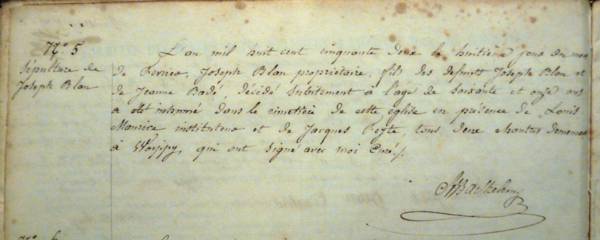 N.º 5
Sépulture de
Joseph Blan
L'an mil huit cent cinquante deux le huitième jour du mois
de Février, Joseph Blan propriétaire, fils des defunts Joseph Blan et
de Jeanne Badé, décédé subitement à l'age de soixante et onze ans
a été inhumé dans le cimetière de cette église en présence de Louis
Maurice instituteur et de Jacques tous deux chantres demeurant
à Woippy, qui ont signé avec moi Curé.